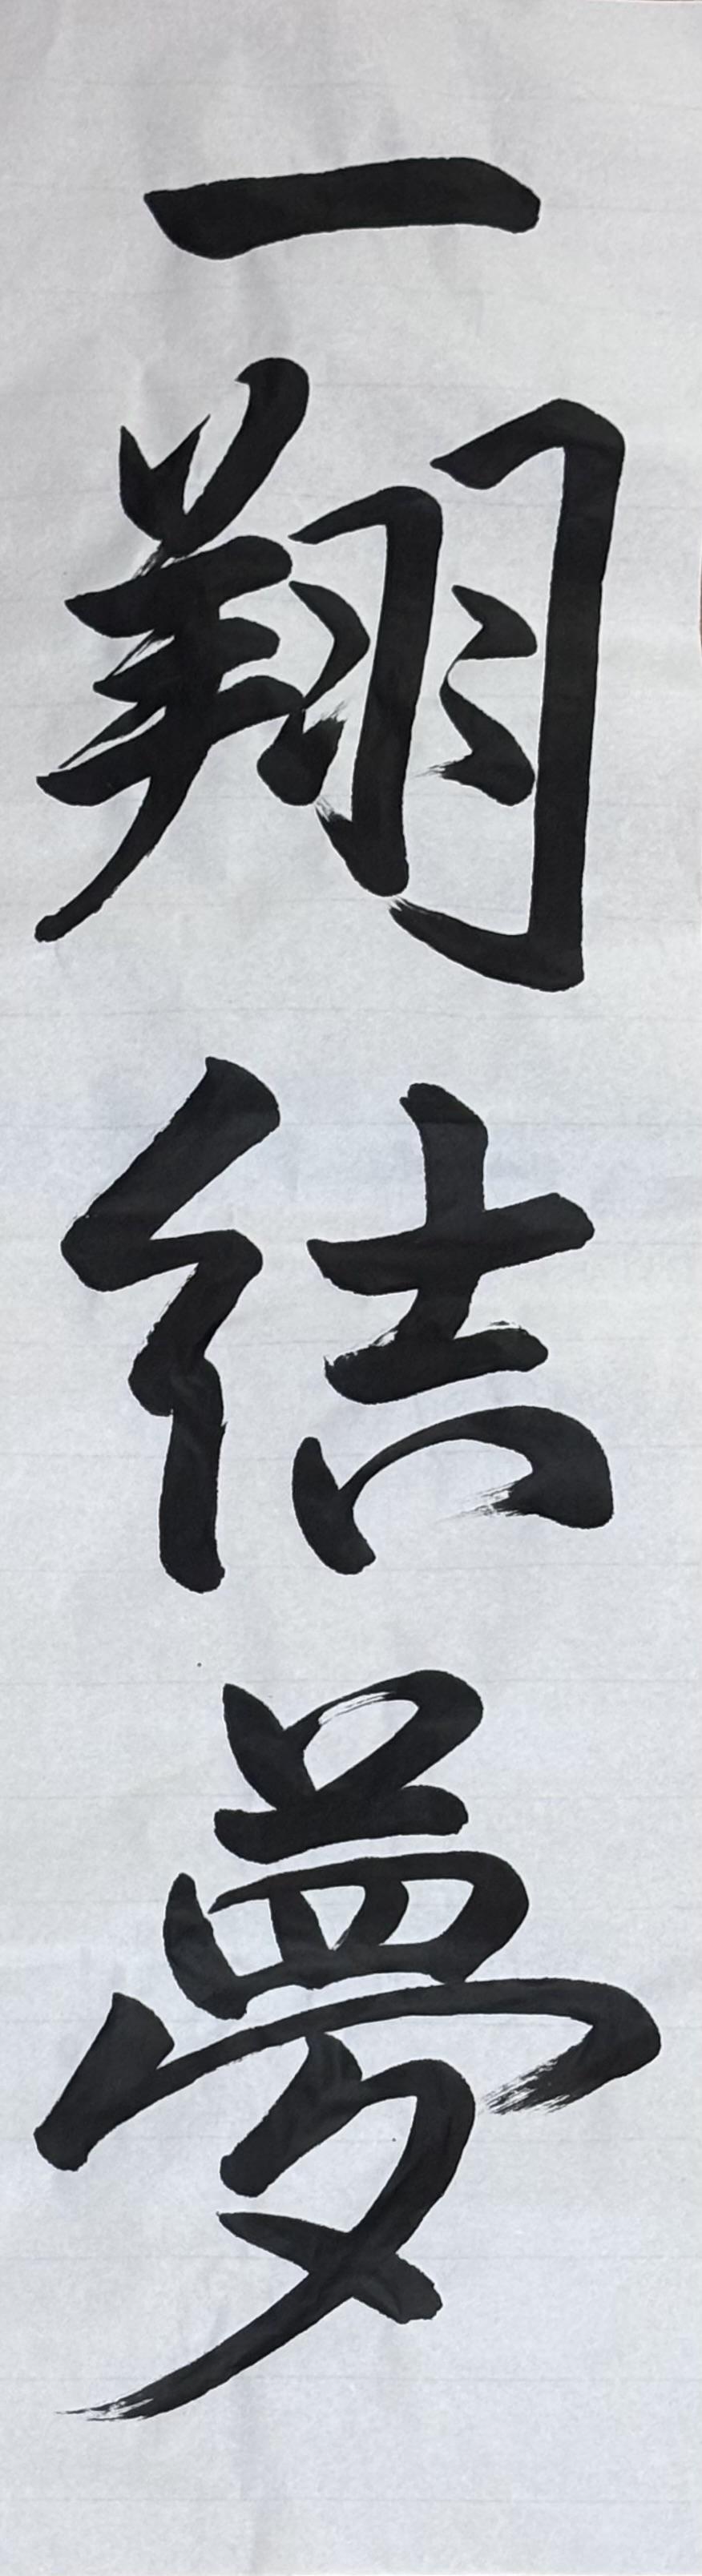 一翔結夢